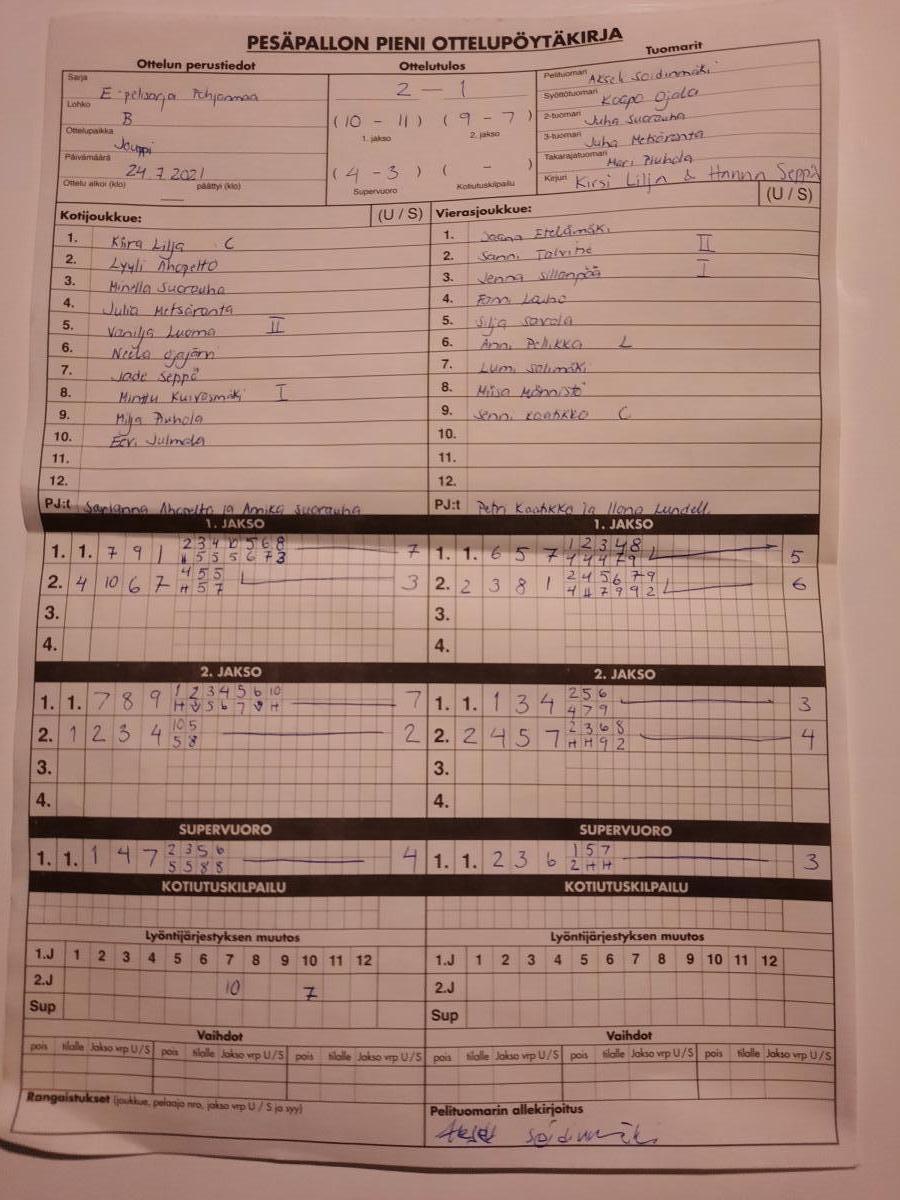 PESÄPALLON PIENI OTTELUPÖYTÄKIRJA
Ottelun perustiedot
Sarja
E-pelisarja Pohjanmaa
Lohko
B
Ottelupaikka
Jouppi
Päivämäärä
24.7.2021
Ottelu alkoi (klo) päättyi (klo)
Ottelutulos
2 - 1
(10 - 11) (9 - 7)
1. jakso 2. jakso
(4 - 3) ( - )
Supervuoro Kotiutuskilpailu
Tuomarit
Pelituomari Akseli Soidinmäki
Syöttötuomari Kaapo Ojala
2-tuomari Juha Suorauha
3-tuomari Juha Metsäranta
Takarajatuomari Mari Puhola
Kirjuri Kirsi Lilja & Hanna Seppä
Kotijoukkue: (U / S)
1. Kiira Lilja C
2. Lyyli Ahopelto
3. Minella Suorauha
4. Julia Metsäranta
5. Vanilja Luoma II
6. Neela
7. Jade Seppä
8. Minttu Kuivasmäki I
9. Milja Puhola
10. Eevi Julmala
11.
12.
PJ:t Sarianna Ahopelto ja Annika Suorauha
Vierasjoukkue: (U / S)
1. Joana Etelämäki
2. Sanni Talvitie II
3. Jenna Sillanpää I
4. Fanni Lauho
5. Silja Savola
6. Anni Pellikka L
7. Lumi Salimäki
8. Miisa Männistö
9. Senni Kaatikko C
10.
11.
12.
PJ:t Petri Kaatikko ja Ilona Lundell
1. JAKSO
1. 1. 7 9 1 2 3 4 10 5 6 8 7
H 5 5 5 6 7 3
2. 4 10 6 7 4 5 5 3
H 5 7
3.
4.
1. JAKSO
1. 1. 6 5 7 1 2 3 4 8 5
4 4 4 7 9
2. 2 3 8 1 2 4 5 6 7 9 6
4 H 7 9 9 2
3.
4.
2. JAKSO
1. 1. 7 8 9 1 2 3 4 5 6 10 7
H V 5 6 7 V H
2. 1 2 3 4 10 5 2
5 8
3.
4.
2. JAKSO
1. 1. 1 3 4 2 5 6 3
4 7 9
2. 2 4 5 7 2 3 6 8 4
H H 9 2
3.
4.
SUPERVUORO
1. 1. 1 4 7 2 3 5 6 4
5 5 8 8
SUPERVUORO
1. 1. 2 3 6 1 5 7 3
2 H H
KOTIUTUSKILPAILU
KOTIUTUSKILPAILU
Lyöntijärjestyksen muutos
1.J 1 2 3 4 5 6 7 8 9 10 11 12
2.J 10 7
Sup
Lyöntijärjestyksen muutos
1.J 1 2 3 4 5 6 7 8 9 10 11 12
2.J
Sup
Vaihdot
pois tilalle Jakso vrp U/S pois tilalle Jakso vrp U/S pois tilalle Jakso vrp U/S
Vaihdot
pois tilalle Jakso vrp U/S pois tilalle Jakso vrp U/S pois tilalle Jakso vrp U/S
Rangaistukset (joukkue, pelaaja nro, jakso vrp U / S ja syy)
Pelituomarin allekirjoitus
Akseli Soidinmäki